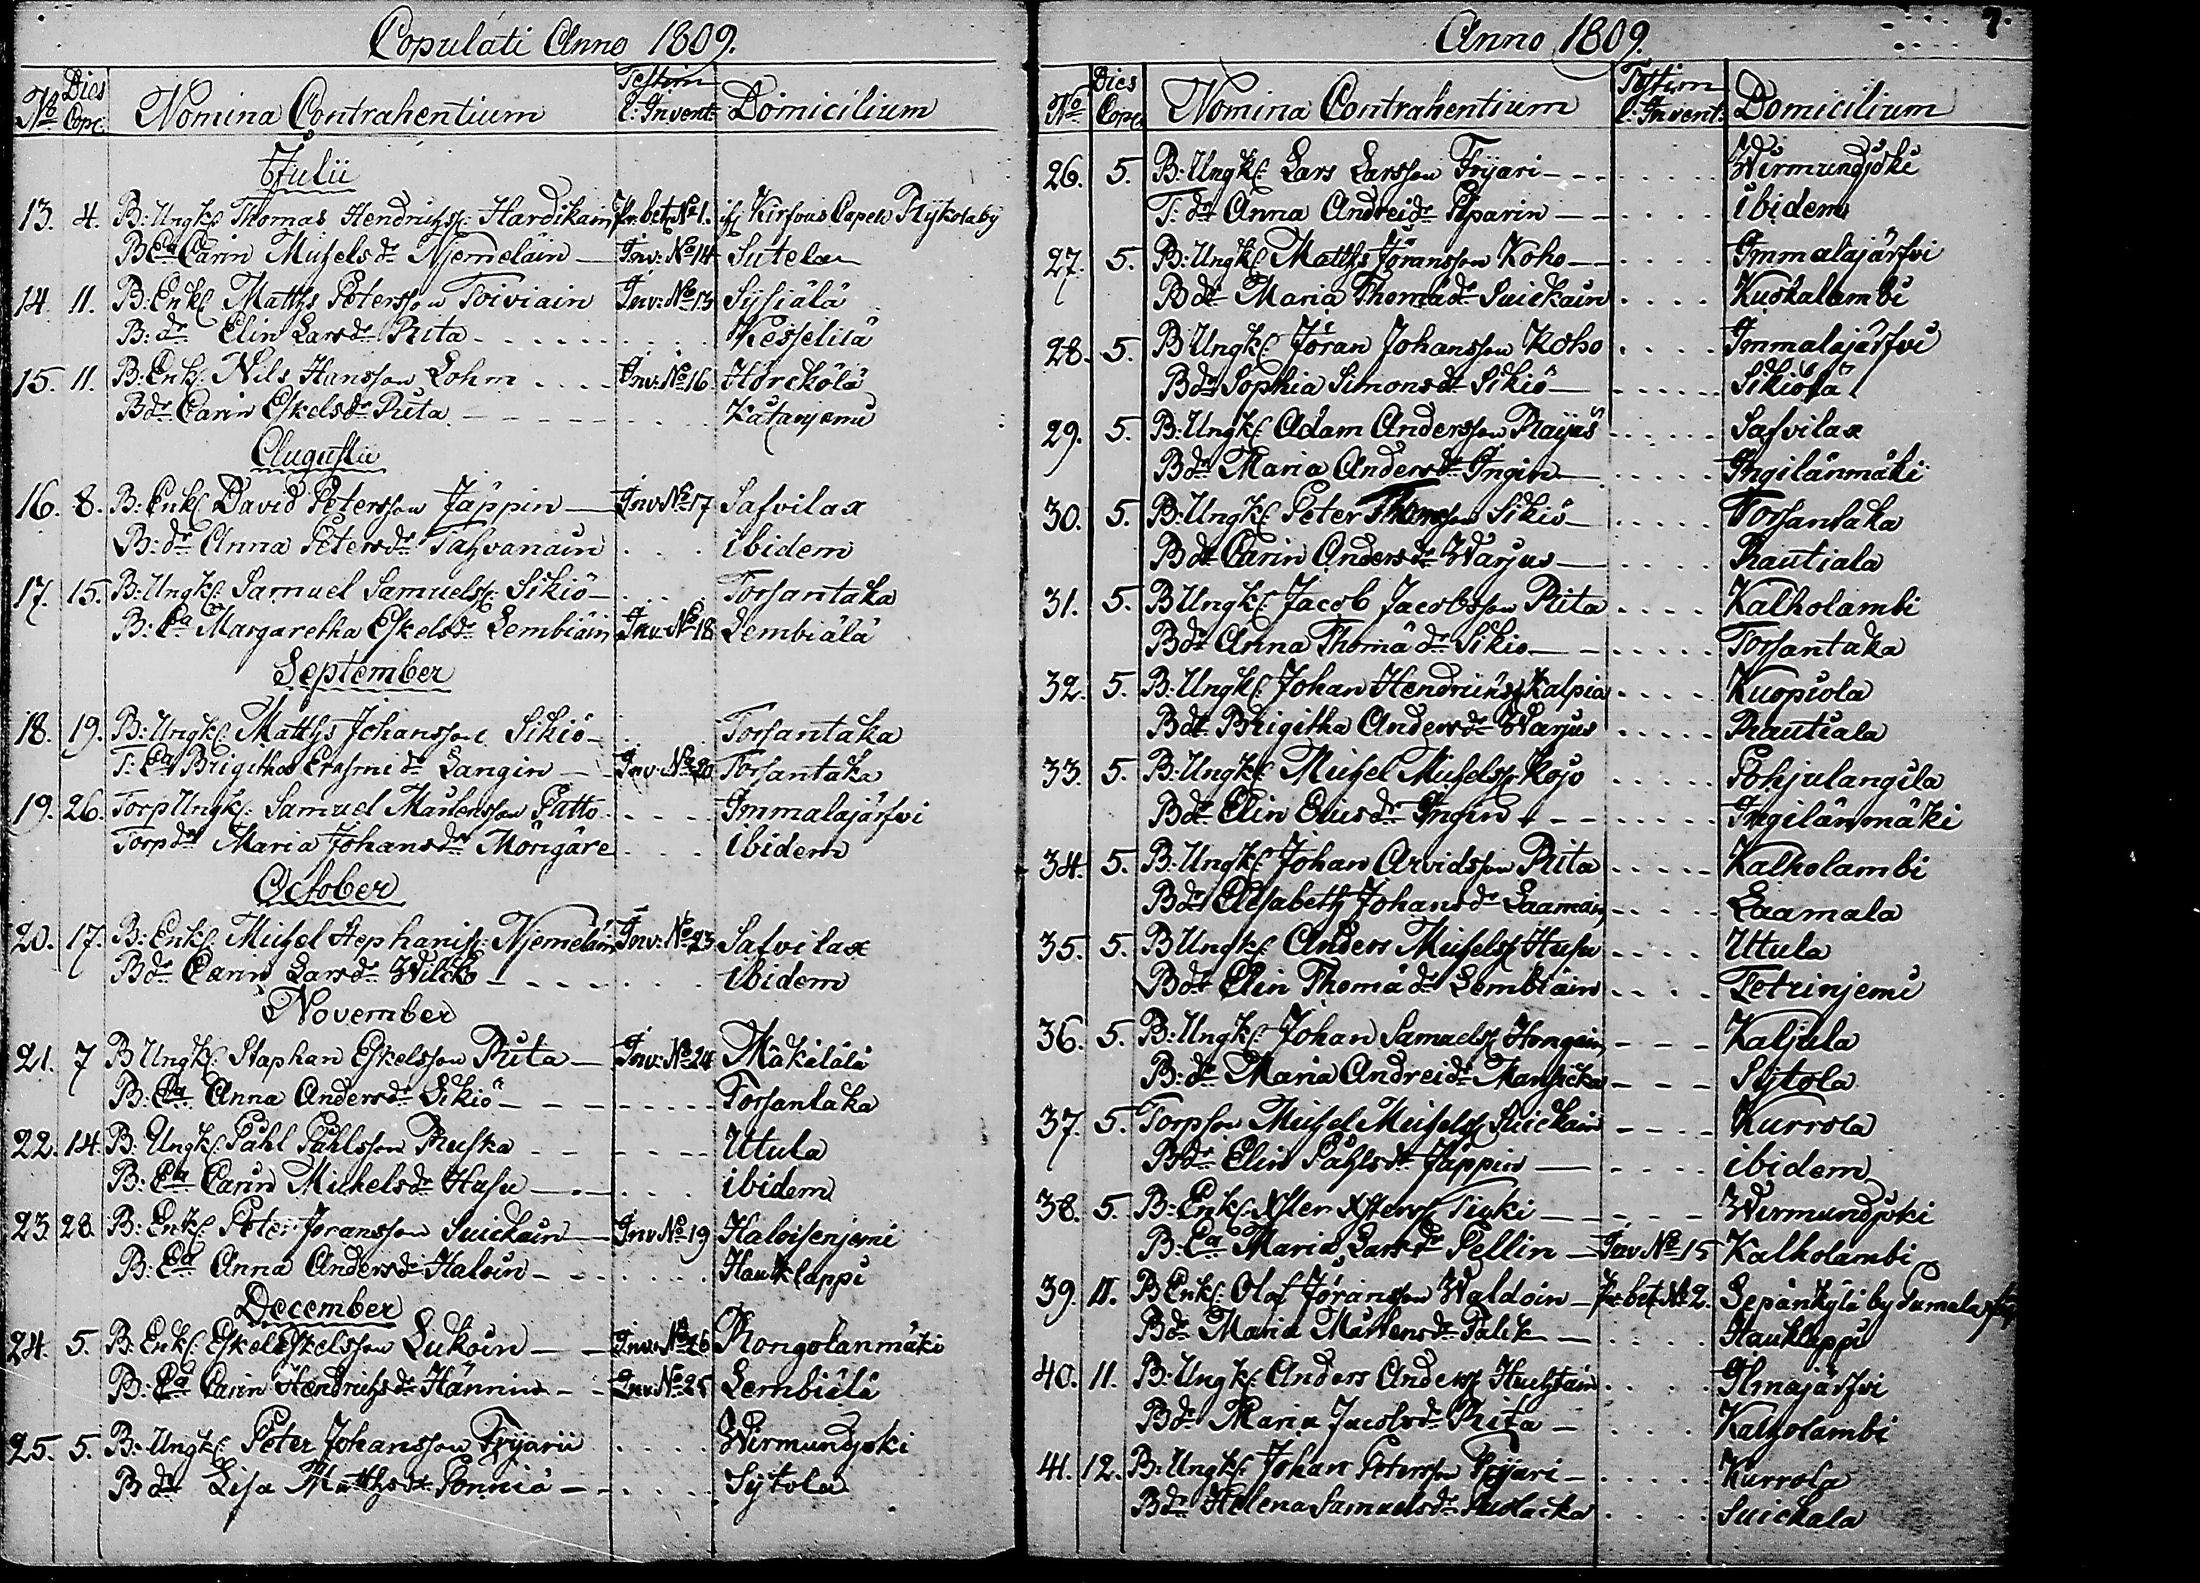 Copulati Anno 1809.
No Dies Cop: Nomina Contrahentium Testim l: Invent: Domicilium
Julii
13. 4. B: Ungk: Thomas Hendrichss: Hardikain Pr: bet: No 1. Kirfvus Capell Rykolaby
B: Ea Carin Michelsdr Njemeläin — Inv: No 14 Sutela
14. 11. B: Enkl: Matths Petersson Toiviain Inv: No 13 Sysiälä
B: dr Elin Larsdr Rita Kesseliiä
15. 11. B: Enkl: Nils Hansson Lohm Inv: No 16. Hörckölä
B dr Carin Eskelsdr Rita Kätänjemi
Augusti
16. 8. B: Enkl David Petersson Jäppin — Inv No 17 Safvilax
B: dr Anna Petersdr Tahvanain ibidem
17. 15. B: Ungk: Samuel Samuelss: Sikiö — Torsantaka
B: Ea Margaretha Eskelsdr Lembiäin Inv: No 18 Lembiälä
September
18. 19. B: Ungk: Matths Johansson Sikiö — Torsantaka
T: Ea Brigitha Erasmi dr Langin — Inv: No 20 Torsantaka
19. 26. Torp Ungk: Samuel Mårtensson Patto Immalajärfvi
Torp dr Maria Johansdr Mörigäre ibidem
October
20. 17. B: Enkl: Michel Stephaniss: Njemeläin Inv: No 23 Safvilax
B dr Carin Larsdr Wilcko ibidem
November
21. 7 B Ungk: Staphan Eskelsson Rita — Inv: No 24 Mäkälälä
B: Ea Anna Andersdr Sikiö — Torsantaka
22. 14. B: Ungk: Påhl Påhlsson Ruska Utula
B: Ea Carin Michelsdr Husu — ibidem
23 28. B: Enkl: Peter Joransson Suickain — Inv No 19 Haloisenjemi
B: Ea Anna Andersdr Haloin — Hauklappi
December
24. 5. B: Enkl: Eskel Eskelsson Lukoin — Inv: No 26 Rongolanmäki
B: Ea Carin Hendrichsdr Hännin — Inv No 25 Lembiälä
25. 5. B: Ungk: Peter Johansson Fryari Wirmundjoki
B dr Lisa Matthsdr Ponnia — Sytola
Anno 1809. 7.
No Dies Cop: Nomina Contrahentium Testim l: Invent: Domicilium
26. 5. B: Ungk: Lars Larsson Fryari — Wirmundjoki
T: dr Anna Andreidr Piparin — ibidem
27. 5. B: Ungk: Matths Jöransson Koho — Immalajärfvi
B dr Maria Thomädr Suickain Kuokalambi
28. 5. B Ungk: Jöran Johansson Koho Immalajärfvi
B dr Sophia Simonsdr Sikiö — Sikiölä
29. 5. B: Ungk: Adam Andersson Raijas Safvilax
B dr Maria Andersdr Ingin — Ingilänmäki
30. 5. B: Ungk: Peter Thomsson Sikiö — Torsantaka
B dr Carin Andersdr Warjus — Rautiala
31. 5. B Ungk: Jacob Jacobsson Rita Kalholambi
B dr Anna Thomä dr Sikiö — Torsantaka
32. 5. B: Ungk: Johan Hendrichss Kalpia Kuopiola
B dr Brigitha Andersdr Warjus Rautiala
33. 5. B: Ungk: Michel Michelss: Kojo Pohjulangila
B dr Elin Ericsdr Ingin Ingilänmäki
34. 5. B: Ungk: Johan Arvidsson Rita Kalholambi
B dr Elisabeth Johansdr Laamain Laamala
35. 5. B Ungk: Anders Michelss: Husu Utula
B dr Elin Thomä dr Lembiäin Tetrinjemi
36. 5. B: Ungk: Johan Samuelss: Hongain Kaljula
B: dr Maria Andreidr Mansicka Sytola
37. 5. Torpson Michel Michelss: Suickain Kurrola
B dr Elin Påhlsdr Jäppin — ibidem
38. 5. B: Enkl: Tiuki — Wirmundjoki
B: Ea Maria Larsdr Pellin — Inv No 15 Kalholambi
39. 11. B Enkl: Olof Jöransson Waldoin — Pr: bet: No 2. Sepänkylä by Sumala
B dr Maria Mårtensdr Palck — Hauklappi
40. 11. B: Ungk: Anders Anderss: Huchtain Ilmajärfvi
B dr Maria Jacobsdr Rita — Kalholambi
41. 12. B: Ungk: Johan Petersson Fryari — Kurrola
B dr Helena Samuelsdr Suickala